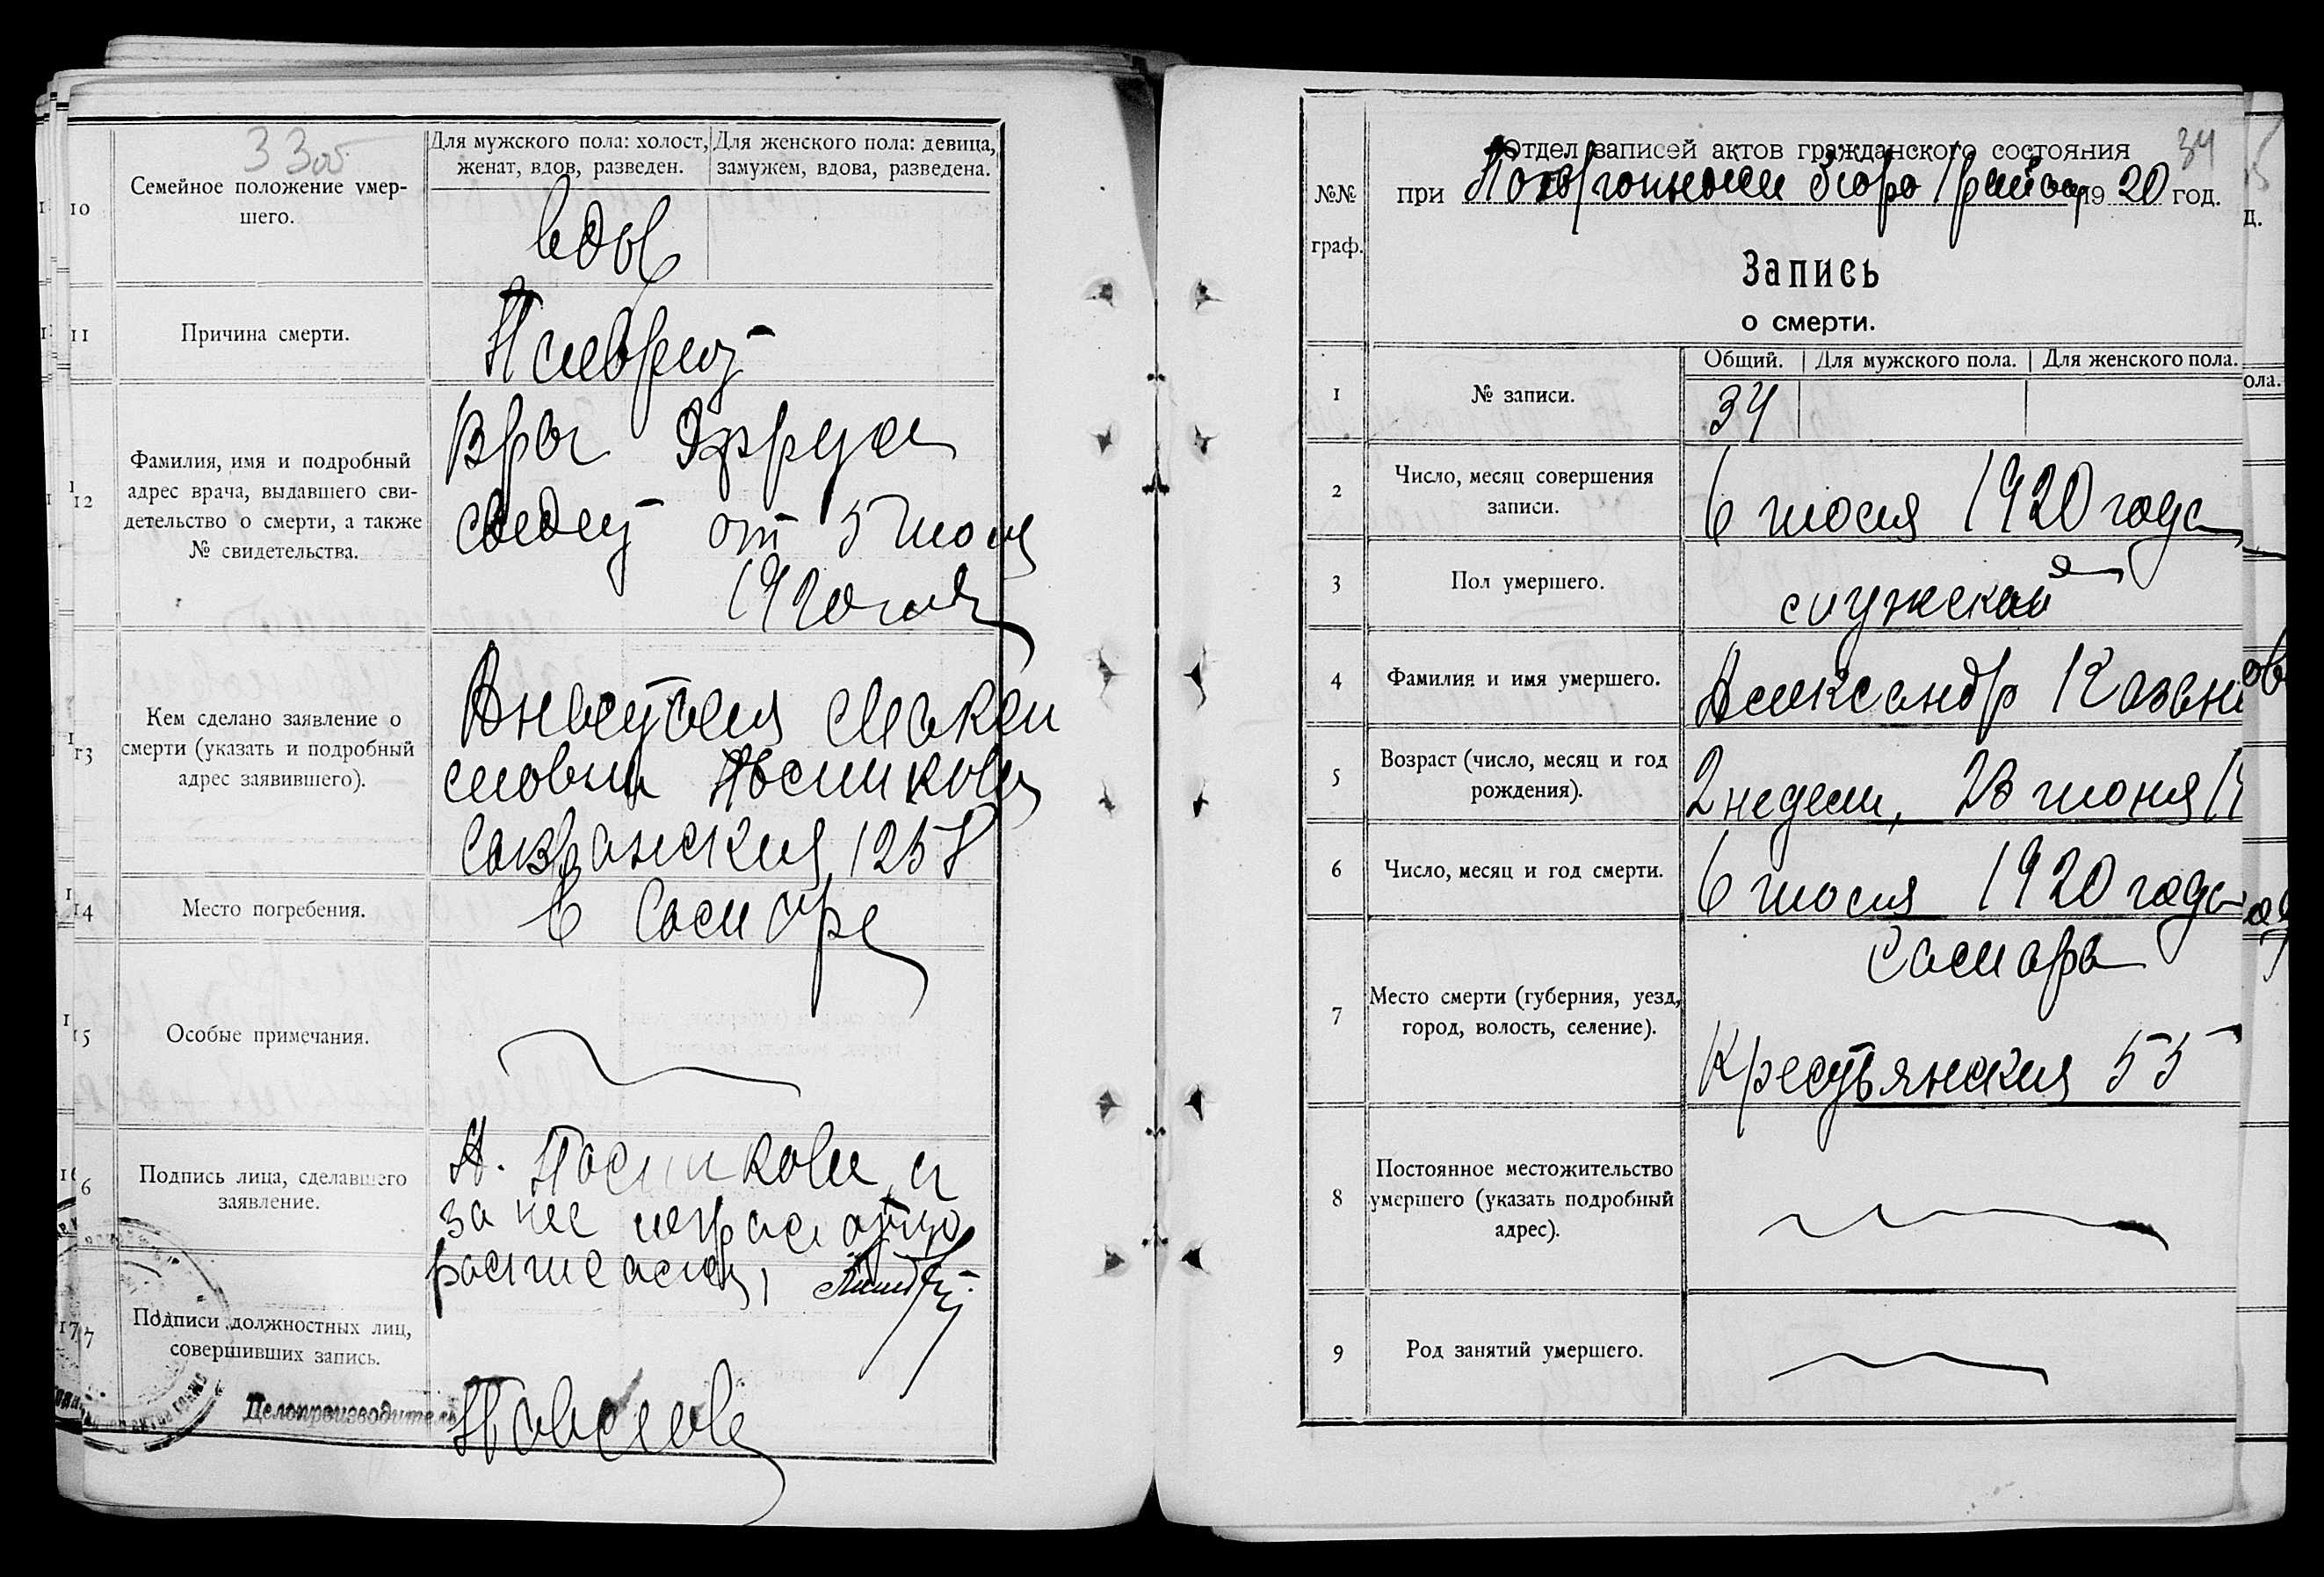 33об
10
Семейное положение умер-
шего.
Для мужского пола: холост,
женат, вдов, разведен.
Для женского пола: девица,
замужем, вдова, разведена.
вдов
11
Причина смерти.
Плеврит
12
Фамилия, имя и подробный
адрес врача, выдавшего сви-
детельство о смерти, а также
№ свидетельства.
Врач
от 5 июля
1920 года
13
Кем сделано заявление о
смерти (указать и подробный
адрес заявившего).
Постникова
125
14
Место погребения.
в Самаре
15
Особые примечания.
16
Подпись лица, сделавшего
заявление.
А. Постникова, а
за нее неграмотную
расписался,
17
Подписи должностных лиц,
совершивших запись.
Делопроизводитель
34
№№
граф.
Отдел записей актов гражданского состояния
при бюро 1 района 1920 год.
Запись
о смерти.
1
№ записи.
Общий.
Для мужского пола.
Для женского пола.
34
2
Число, месяц совершения
записи.
6 июля 1920 года
3
Пол умершего.
мужской
4
Фамилия и имя умершего.
Александр
5
Возраст (число, месяц и год
рождения).
2 недели, 23 июня
6
Число, месяц и год смерти.
6 июля 1920 года
7
Место смерти (губерния, уезд,
город, волость, селение).
Самара
Крестьянская 55
8
Постоянное местожительство
умершего (указать подробный
адрес).
9
Род занятий умершего.